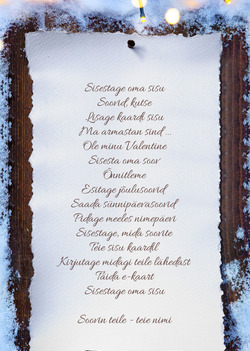 Sisestage oma sisu
Soovid, kutse
Lisage kaardi sisu
Ma armastan sind ...
Ole minu Valentine
Sisesta oma soov
Õnnitleme
Esitage jõulusoovid
Saada sünnipäevasoovid
Pidage meeles nimepäevi
Sisestage, mida soovite
Teie sisu kaardil
Kirjutage midagi teile lähedast
Täida e-kaart
Sisestage oma sisu
Soovin teile - teie nimi